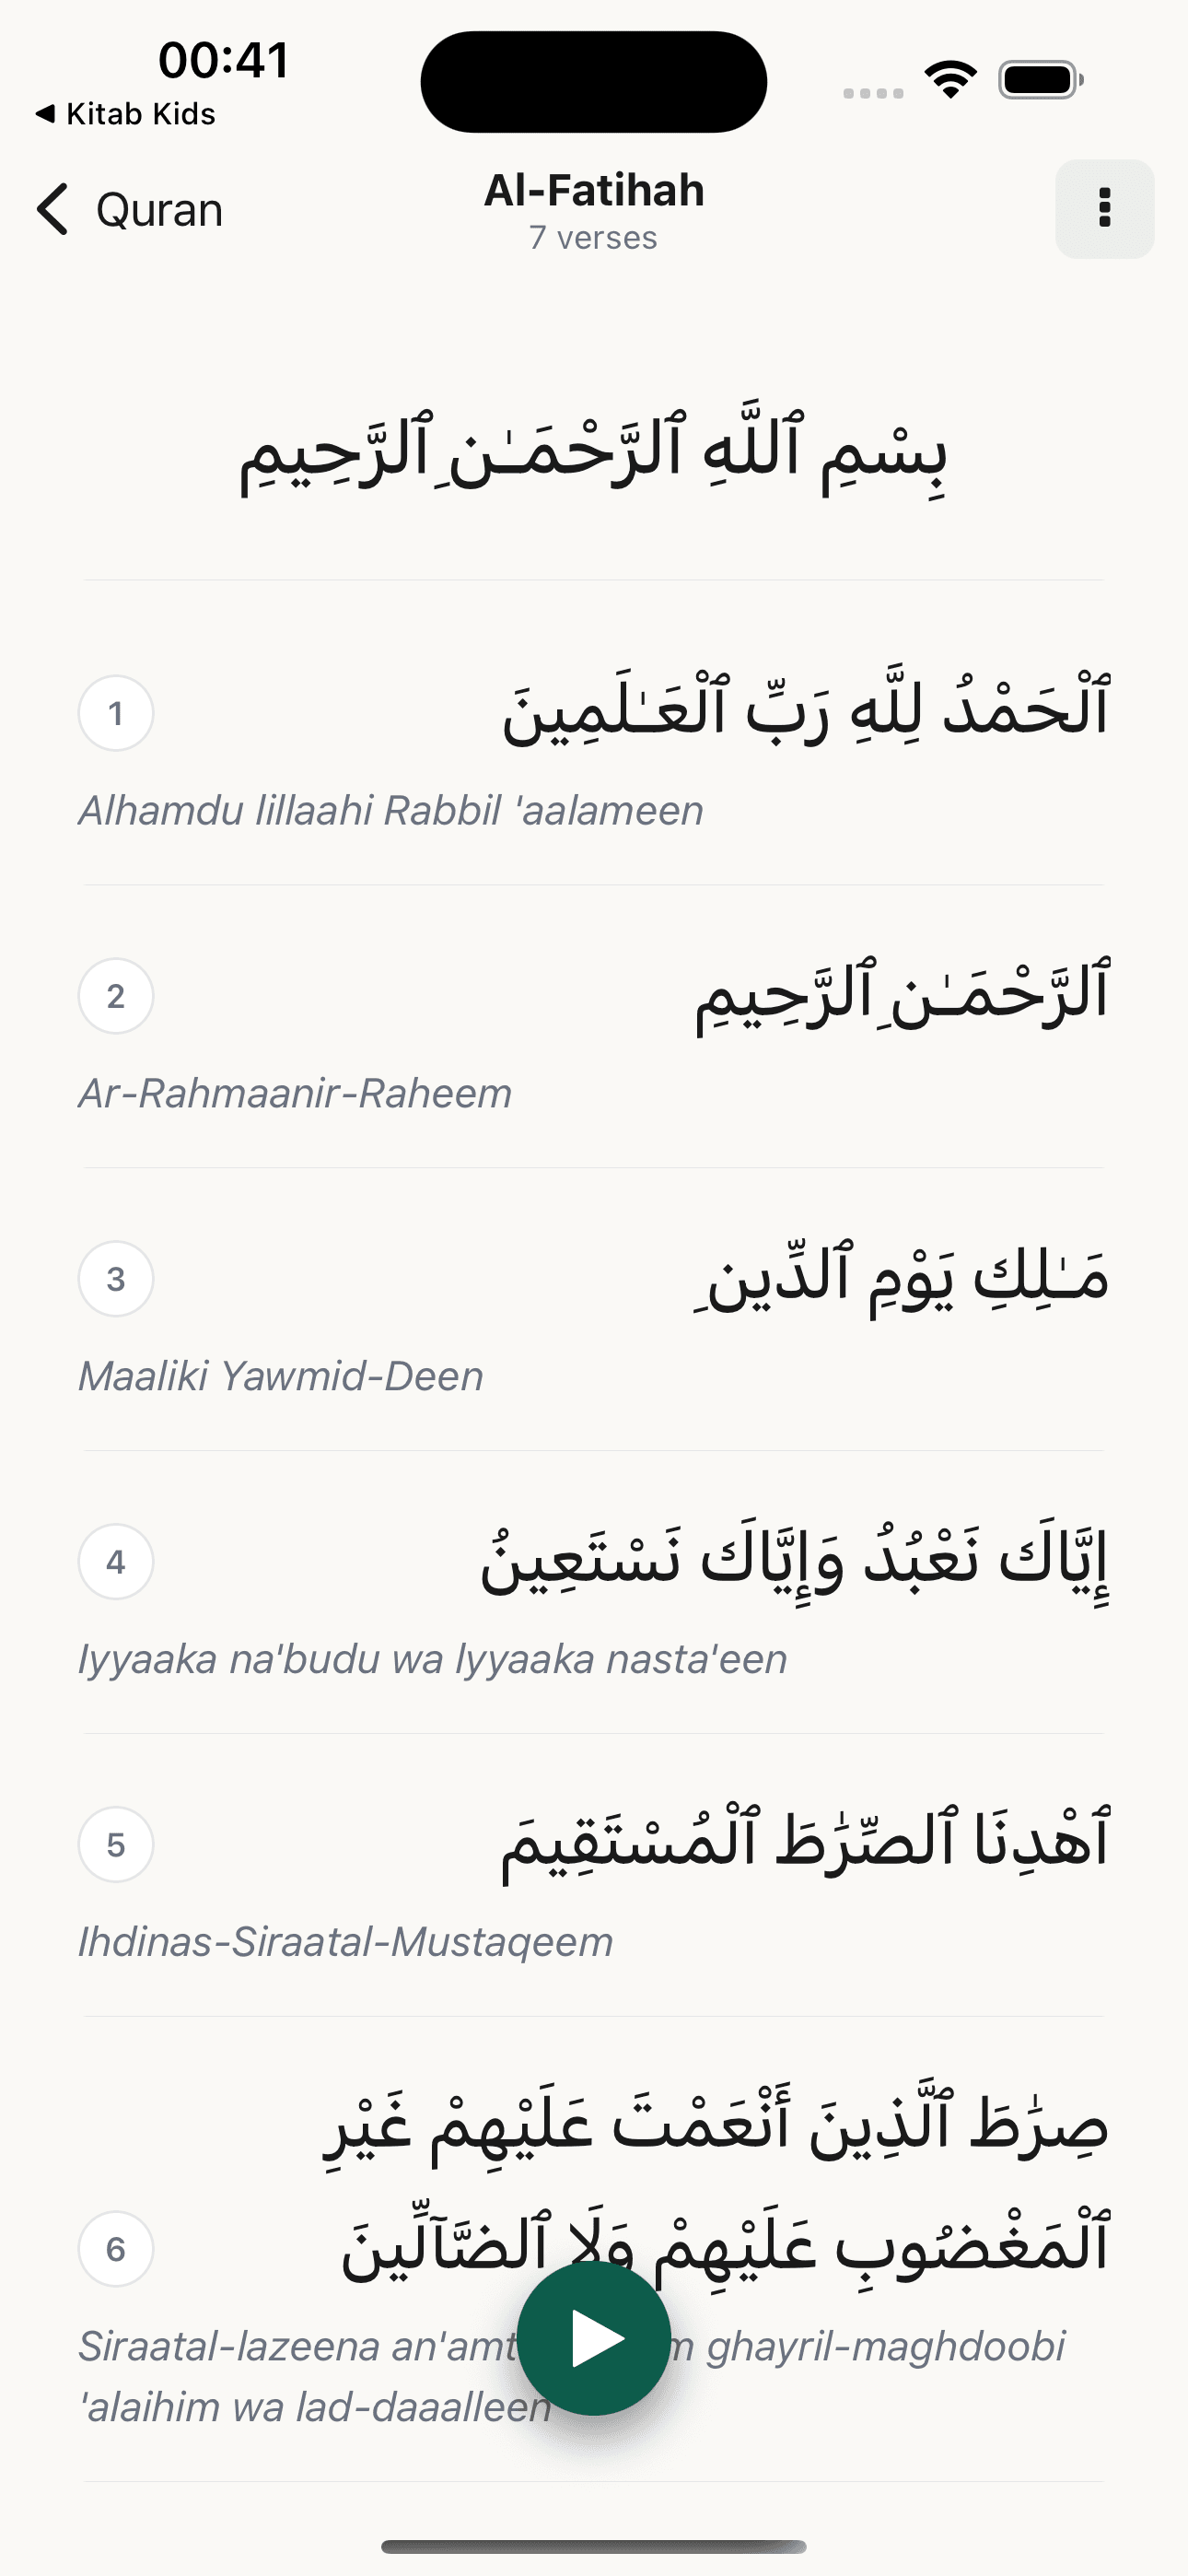 00:41
◀ Kitab Kids
Quran
Al-Fatihah
7 verses
بِسْمِ ٱللَّهِ ٱلرَّحْمَـٰنِ ٱلرَّحِيمِ
1
ٱلْحَمْدُ لِلَّهِ رَبِّ ٱلْعَـٰلَمِينَ
Alhamdu lillaahi Rabbil 'aalameen
2
ٱلرَّحْمَـٰنِ ٱلرَّحِيمِ
Ar-Rahmaanir-Raheem
3
مَـٰلِكِ يَوْمِ ٱلدِّينِ
Maaliki Yawmid-Deen
4
إِيَّاكَ نَعْبُدُ وَإِيَّاكَ نَسْتَعِينُ
Iyyaaka na'budu wa Iyyaaka nasta'een
5
ٱهْدِنَا ٱلصِّرَٰطَ ٱلْمُسْتَقِيمَ
Ihdinas-Siraatal-Mustaqeem
صِرَٰطَ ٱلَّذِينَ أَنْعَمْتَ عَلَيْهِمْ غَيْرِ
6
ٱلْمَغْضُوبِ عَلَيْهِمْ وَلَا ٱلضَّآلِّينَ
Siraatal-lazeena ghayril-maghdoobi
'alaihim wa lad-daaalleen